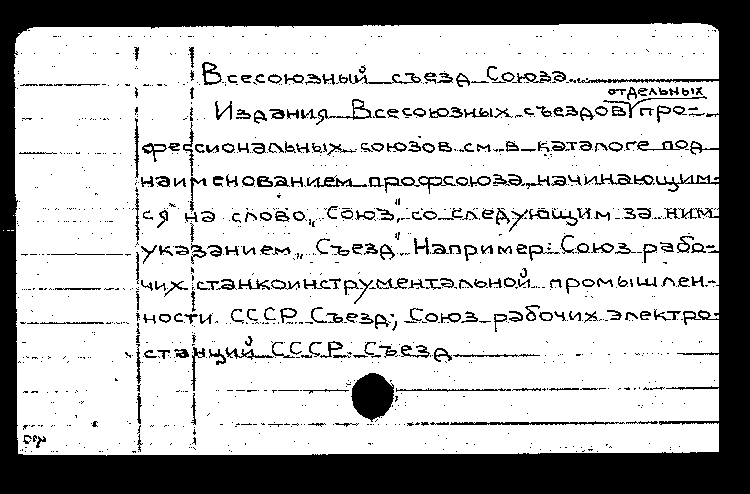 Всесоюзный съезд Союза...
отдельных
Издания Всесоюзных съездов про-
фессиональных союзов см. в каталоге под
наименованием профсоюза, начинающим-
ся на слово „Союз", со следующим за ним
указанием „Съезд". Например: Союз рабо-
чих станкоинструментальной промышлен-
ности СССР. Съезд; Союз рабочих электро-
станций СССР. Съезд